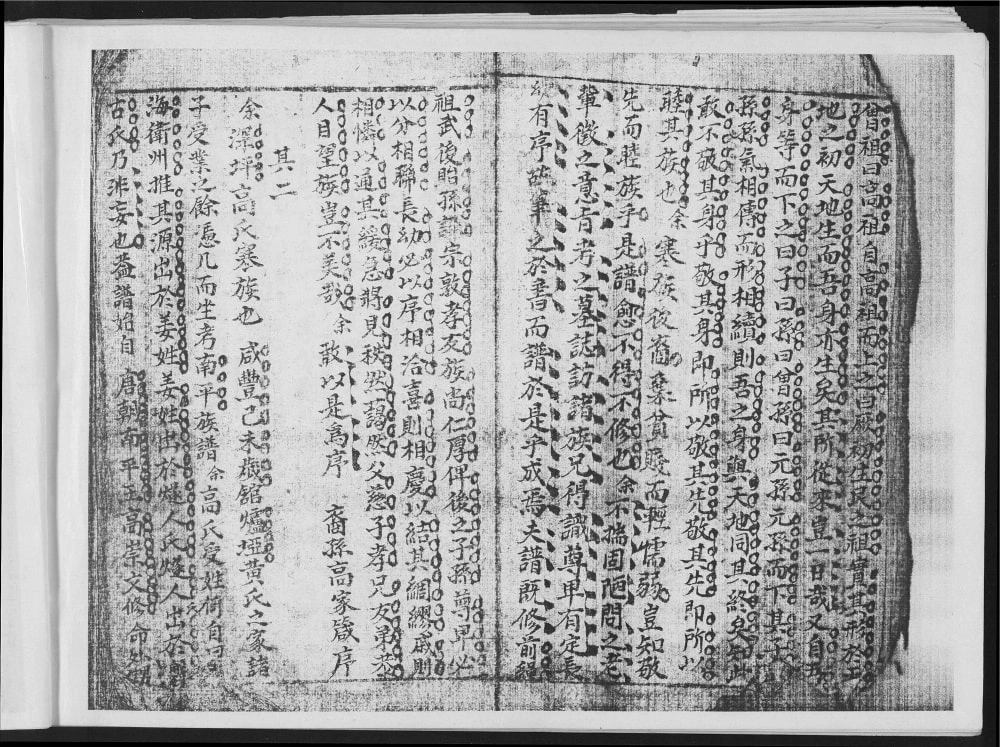 曾祖曰高祖自高祖而上之曰厥初生民之祖實其形於
地之初天地生而吾身亦生矣其所從來豈一日哉又自
身等而下之曰子曰孫曰曾孫曰元孫元孫而下其
孫孫氣相傳而形相續則吾之身與天地同其終矣知此
敢不敬其身乎敬其身即所以敬其先敬其先即所以
睦其族也余寒族後裔棄貧賤而輕懦弱豈知敬
先而睦族乎是譜愈不得不修也余不揣固陋問之老
輩徵之意旨考之墓誌訪諸族兄得識尊卑有定長
幼有序故筆之於書而譜於是乎成焉夫譜既修前繩
祖武後貽孫謀宗敦孝友族尚仁厚俾後之子孫尊卑必
以分相稱長幼必以序相洽喜則相慶以結其綢繆戚則
相憐以通其緩急將見秩然藹然父慈子孝兄友弟恭
人目望族豈不美哉余敢以是為序 裔孫高家箴序
其二
余澤坪高氏寒族也 咸豐己未歲舘爐埡黃氏之家諸
子受業之餘憑几而坐考南平族譜余高氏受姓何自曰
海衛州推其源出於姜姓姜姓出於燧人氏燧人出於
古氏乃非妄也蓋譜始自 唐朝南平王高崇文修命